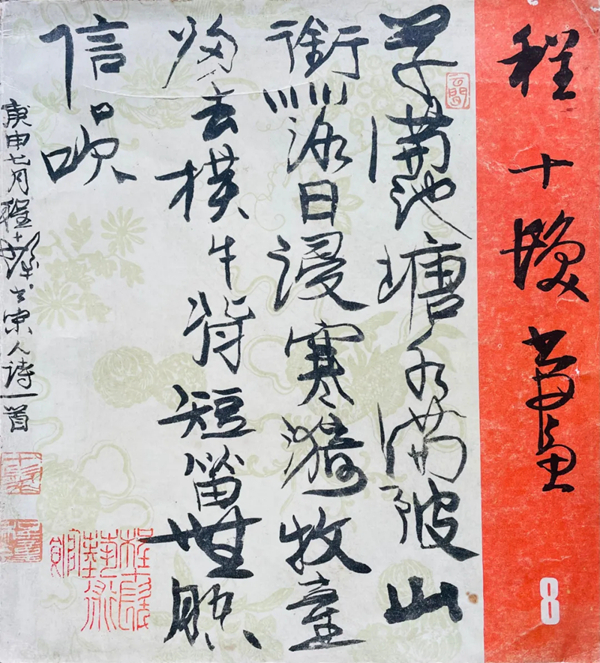 程十髮書畫
8
草滿池塘水滿陂山
銜落日浸寒漪牧童
歸去橫牛背短笛無腔
信口吹
庚申七月程十髮书宋人诗一首
雲間